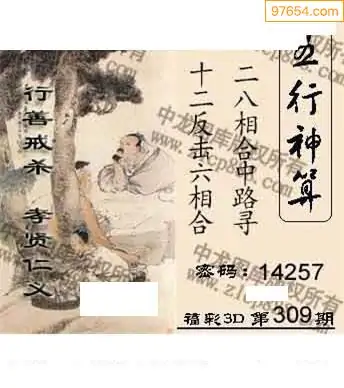 97654.com
五行神算
二八相合中路寻
十二反击六相合
行善戒杀 孝贤仁义
密码：14257
福彩3D 第309期